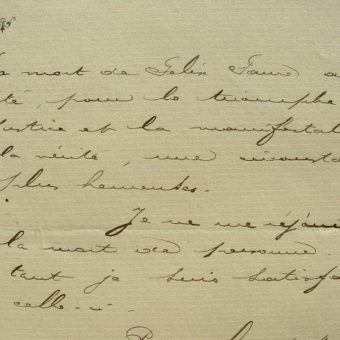 a mort de Félix Faure a
té, pour le triomphe
ustice et la manifestat
la vérité, une
plus heureuses.
Je ne me réjoui
la mort de personne.
tant je suis satisfa
celle-ci.